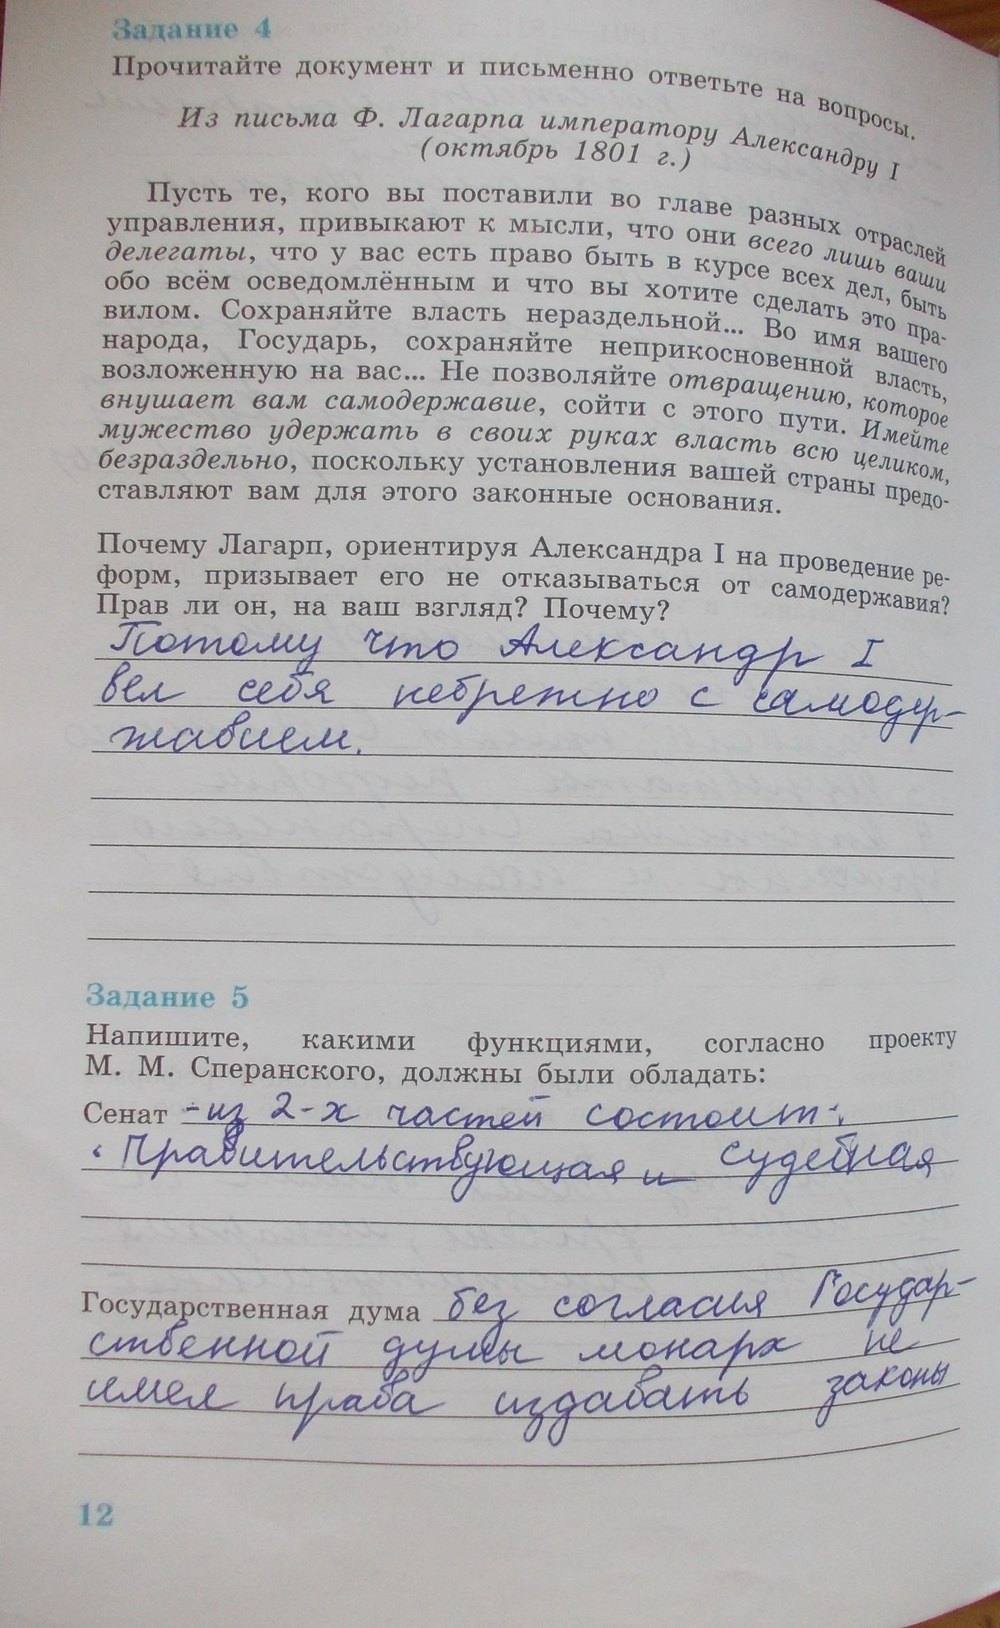 Задание 4
Прочитайте документ и письменно ответьте на вопросы.
Из письма Ф. Лагарпа императору Александру I
(октябрь 1801 г.)
Пусть те, кого вы поставили во главе разных отраслей
управления, привыкают к мысли, что они всего лишь ваши
делегаты, что у вас есть право быть в курсе всех дел, быть
обо всём осведомлённым и что вы хотите сделать это пра-
вилом. Сохраняйте власть нераздельной... Во имя вашего
народа, Государь, сохраняйте неприкосновенной власть,
возложенную на вас... Не позволяйте отвращению, которое
внушает вам самодержавие, сойти с этого пути. Имейте
мужество удержать в своих руках власть всю целиком,
безраздельно, поскольку установления вашей страны предо-
ставляют вам для этого законные основания.
Почему Лагарп, ориентируя Александра I на проведение ре-
форм, призывает его не отказываться от самодержавия?
Прав ли он, на ваш взгляд? Почему?
Потому что Александр I
вел себя небрежно с самодер-
жавием.
Задание 5
Напишите, какими функциями, согласно проекту
М. М. Сперанского, должны были обладать:
Сенат -из 2-х частей состоит:
Правительствующая и судебная
Государственная дума без согласия Государ-
ственной думы монарх не
имел права издавать законы
12